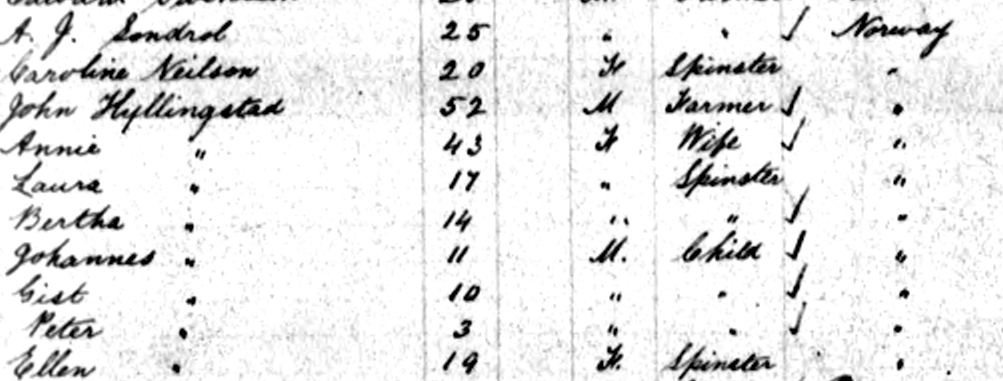 A. J. Sondrol 25 " " Norway
Caroline Neilson 20 F Spinster "
John Hyllingstad 52 M Farmer "
Annie " 43 F Wife "
Laura " 17 " Spinster "
Bertha " 14 " " "
Johannes " 11 M. Child "
Gist " 10 " " "
Peter " 3 " " "
Ellen " 19 F. Spinster "